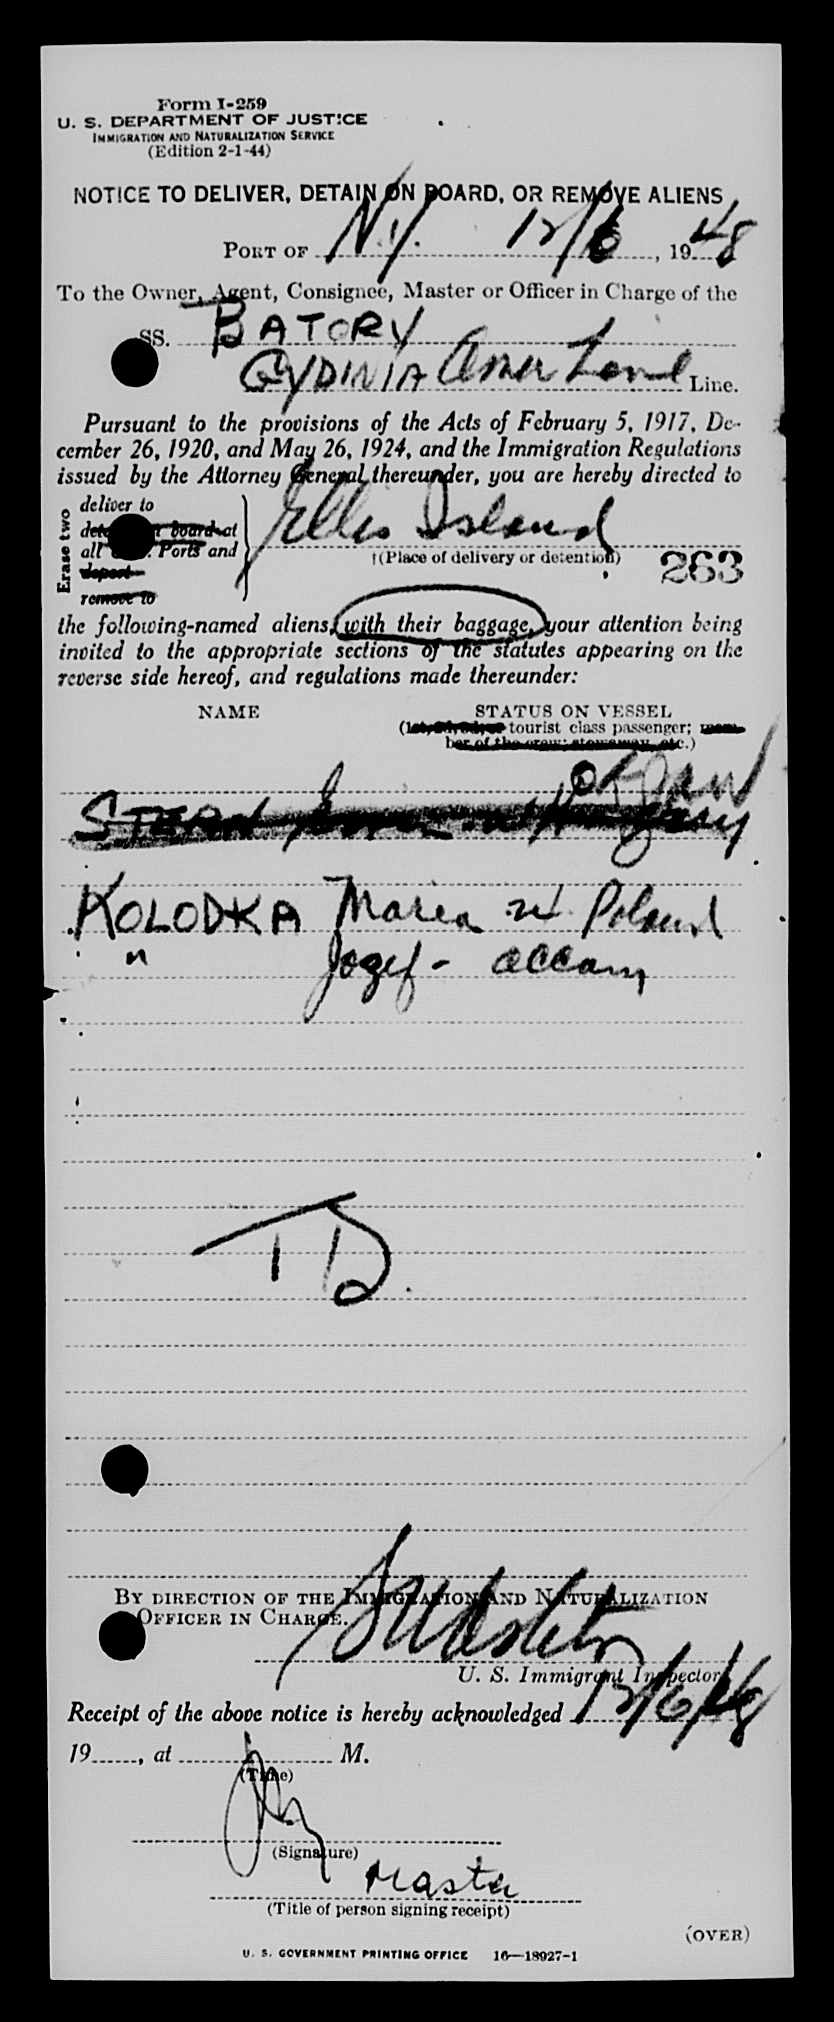 Form I-259
U. S. DEPARTMENT OF JUSTICE
IMMIGRATION AND NATURALIZATION SERVICE
(Edition 2-1-44)
NOTICE TO DELIVER, DETAIN ON BOARD, OR REMOVE ALIENS
PORT OF N.Y. 12/6, 1948
To the Owner, Agent, Consignee, Master or Officer in Charge of the
SS. BATORY
GYDINIA Amer Line Line.
Pursuant to the provisions of the Acts of February 5, 1917, De-
cember 26, 1920, and May 26, 1924, and the Immigration Regulations
issued by the Attorney General thereunder, you are hereby directed to
Erase two
deliver to
board at
all Ports and
deport
remove to
Ellis Island
†(Place of delivery or detention)
263
the following-named aliens, with their baggage, your attention being
invited to the appropriate sections of the statutes appearing on the
reverse side hereof, and regulations made thereunder:
NAME STATUS ON VESSEL
tourist class passenger; mem-
ber of the crew; stowaway, etc.)
STERN
KOLODKA Maria Poland
" Jozef - accom
BY DIRECTION OF THE IMMIGRATION AND NATURALIZATION
OFFICER IN CHARGE.
U. S. Immigrant Inspector
Receipt of the above notice is hereby acknowledged 12/6/48
19____, at ____ M.
(Time)
(Signature)
Master
(Title of person signing receipt)
(OVER)
U. S. GOVERNMENT PRINTING OFFICE 16—18927-1